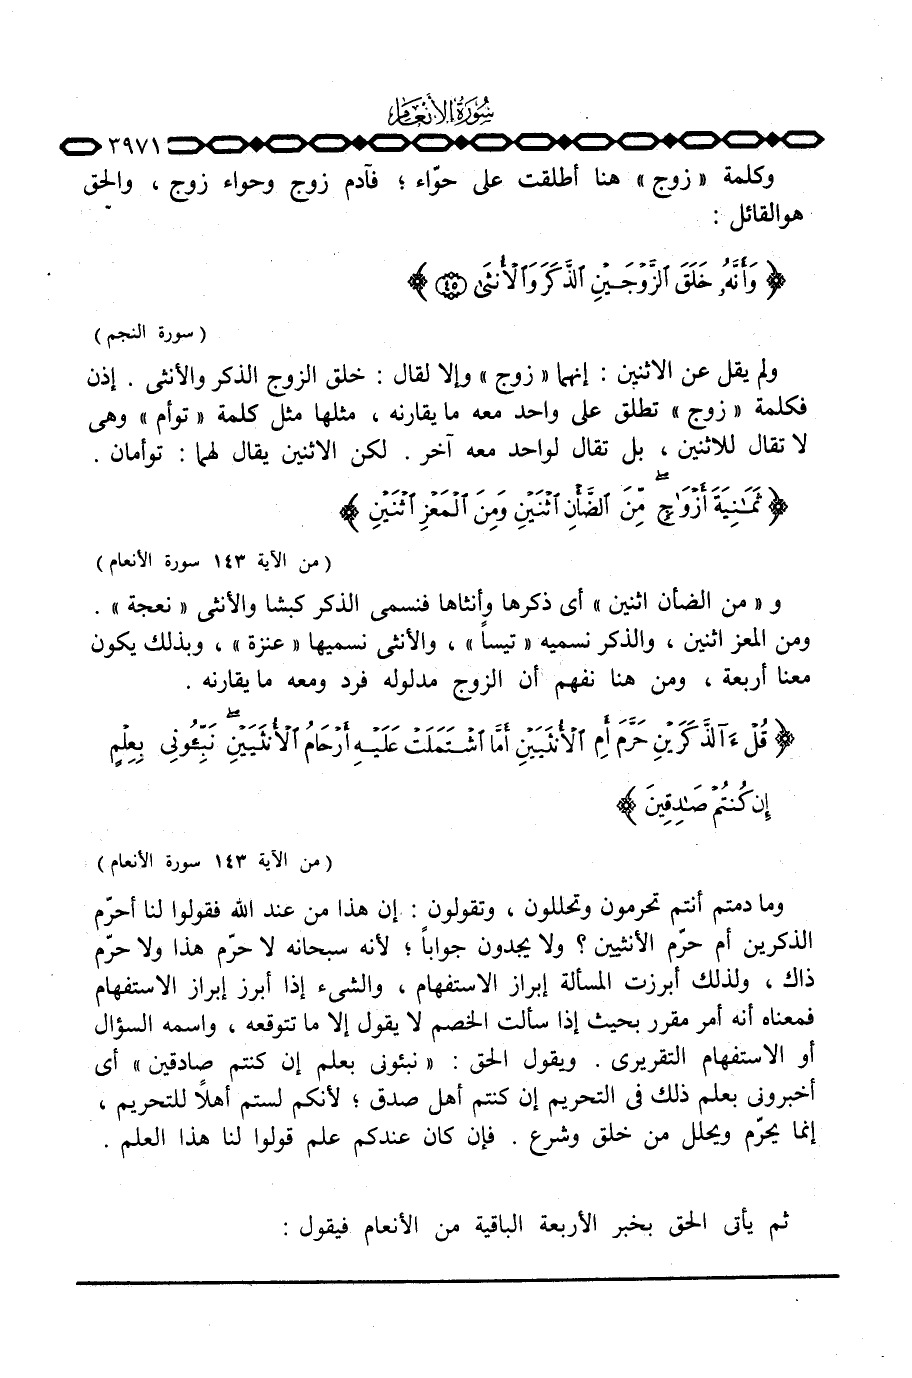 سورة الأنعام
٣٩٧١
وكلمة « زوج » هنا أطلقت على حوّاء ؛ فآدم زوج وحواء زوج ، والحق
هوالقائل :
﴿ وَأَنَّهُۥ خَلَقَ ٱلزَّوۡجَيۡنِ ٱلذَّكَرَ وَٱلۡأُنثَىٰ ٤٥ ﴾
( سورة النجم )
ولم يقل عن الاثنين : إنهما « زوج » وإلا لقال : خلق الزوج الذكر والأنثى . إذن
فكلمة « زوج » تطلق على واحد معه ما يقارنه ، مثلها مثل كلمة « توأم » وهى
لا تقال للاثنين ، بل تقال لواحد معه آخر . لكن الاثنين يقال لهما : توأمان .
﴿ ثَمَٰنِيَةَ أَزۡوَٰجٖۖ مِّنَ ٱلضَّأۡنِ ٱثۡنَيۡنِ وَمِنَ ٱلۡمَعۡزِ ٱثۡنَيۡنِ ﴾
( من الآية ١٤٣ سورة الأنعام )
و « من الضأن اثنين » أى ذكرها وأنثاها فنسمى الذكر كبشا والأنثى « نعجة » .
ومن المعز اثنين ، والذكر نسميه « تيساً » ، والأنثى نسميها « عنزة » ، وبذلك يكون
معنا أربعة ، ومن هنا نفهم أن الزوج مدلوله فرد ومعه ما يقارنه .
﴿ قُلۡ ءَآلذَّكَرَيۡنِ حَرَّمَ أَمِ ٱلۡأُنثَيَيۡنِ أَمَّا ٱشۡتَمَلَتۡ عَلَيۡهِ أَرۡحَامُ ٱلۡأُنثَيَيۡنِۖ نَبِّـُٔونِى بِعِلۡمٍ
إِن كُنتُمۡ صَٰدِقِينَ ﴾
( من الآية ١٤٣ سورة الأنعام )
وما دمتم أنتم تحرمون وتحللون ، وتقولون : إن هذا من عند الله فقولوا لنا أحرّم
الذكرين أم حرّم الأنثيين ؟ ولا يجدون جواباً ؛ لأنه سبحانه لا حرّم هذا ولا حرّم
ذاك ، ولذلك أبرزت المسألة إبراز الاستفهام ، والشىء إذا أبرز إبراز الاستفهام
فمعناه أنه أمر مقرر بحيث إذا سألت الخصم لا يقول إلا ما تتوقعه ، واسمه السؤال
أو الاستفهام التقريرى . ويقول الحق : « نبئونى بعلم إن كنتم صادقين » أى
أخبرونى بعلم ذلك فى التحريم إن كنتم أهل صدق ؛ لأنكم لستم أهلاً للتحريم ،
إنما يحرّم ويحلل من خلق وشرع . فإن كان عندكم علم قولوا لنا هذا العلم .
ثم يأتى الحق بخبر الأربعة الباقية من الأنعام فيقول :